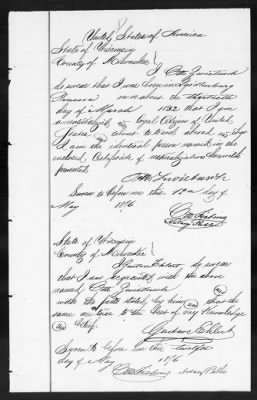 United States of America
State of Wisconsin
County of Milwaukee
I Otto
do swear that I was born in
on or about the
day of March 1832 that I am
a naturalized and loyal Citizen of United
States about to travel abroad
I am the identical person named in the
enclosed Certificate of naturalization herewith
presented
Otto
Sworn to before me this 12th day of
May 1876
Notary Public
State of Wisconsin
County of Milwaukee
I Gustave Ehlert do swear
that I am acquainted with the above
named Otto
with the facts stated by him that the
same are true to the best of my Knowledge
and belief.
Gustave Ehlert
Sworn to before me this twelfth
day of May 1876
Notary Public